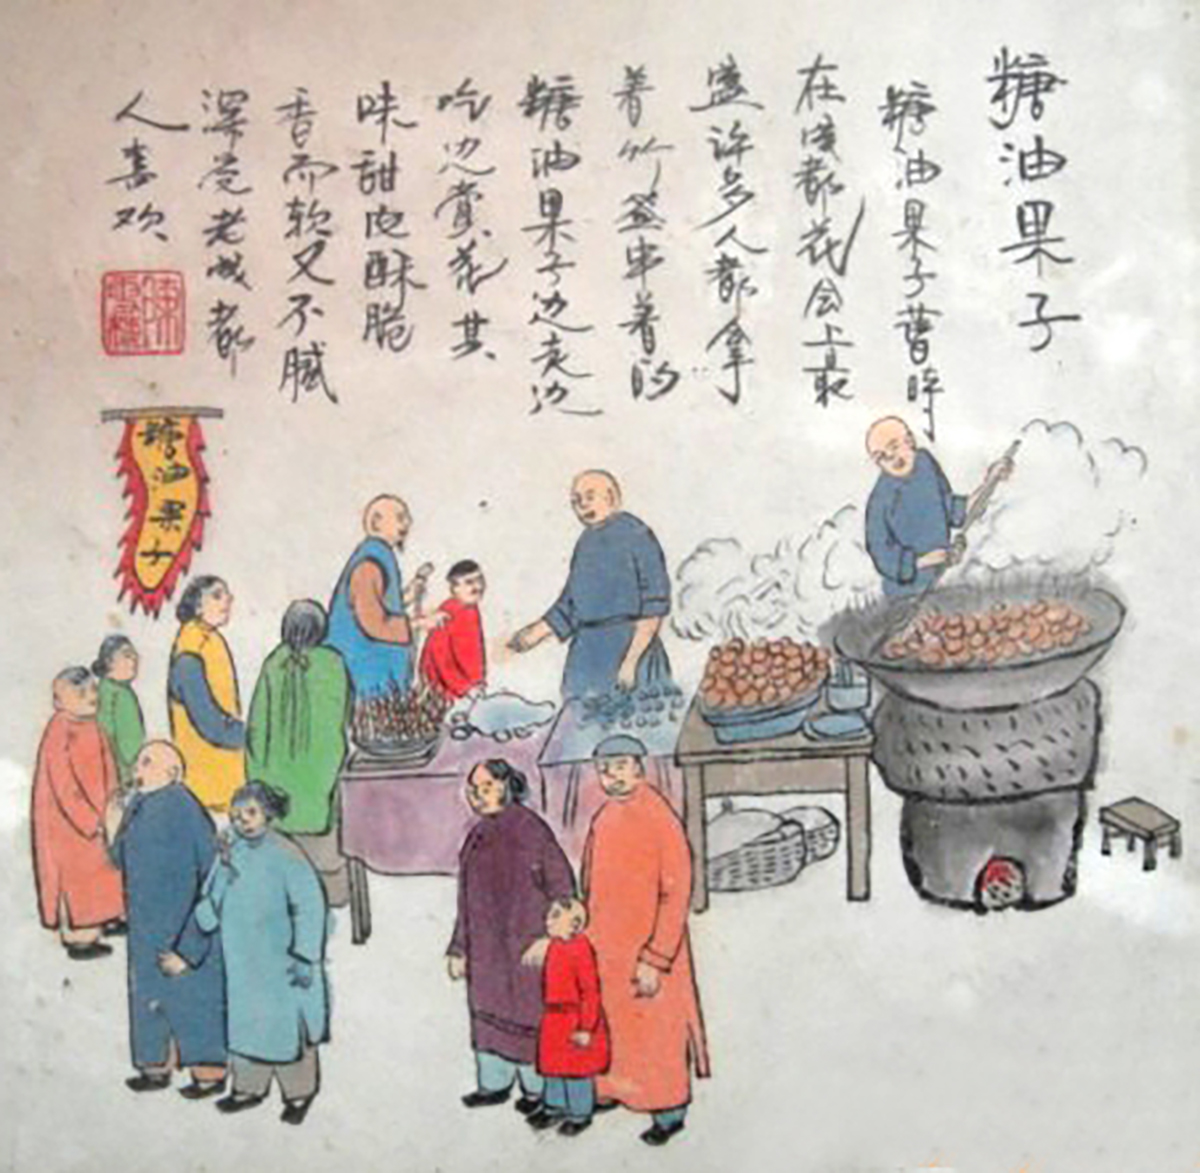 糖油果子
糖油果子曹時
在成都花会上最
盛许多人都拿
着竹签串着的
糖油果子边走边
吃边赏花其
味甜皮酥脆
香而软又不腻
深受老成都
人喜欢
糖油果子